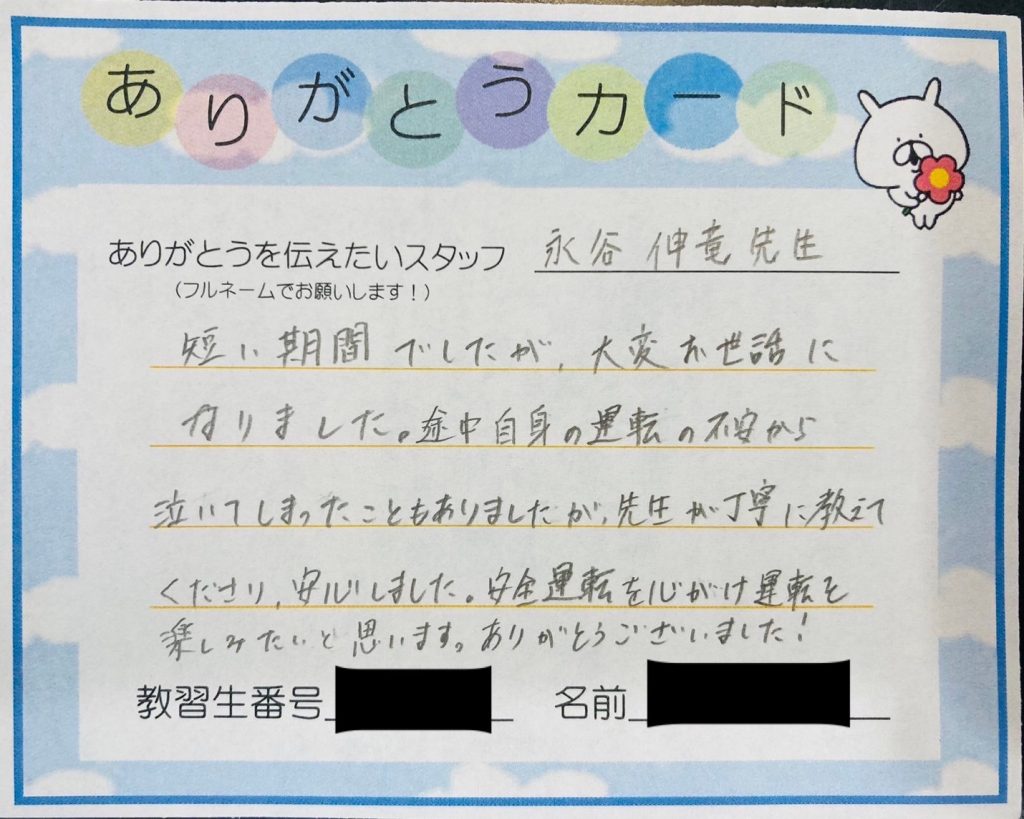 ありがとうカード
ありがとうを伝えたいスタッフ 永谷 伸竜 先生
(フルネームでお願いします!)
短い期間でしたが、大変お世話に
なりました。途中自身の運転の不安から
泣いてしまったこともありましたが、先生が丁寧に教えて
くださり、安心しました。安全運転を心がけ運転を
楽しみたいと思います。ありがとうございました!
教習生番号 名前